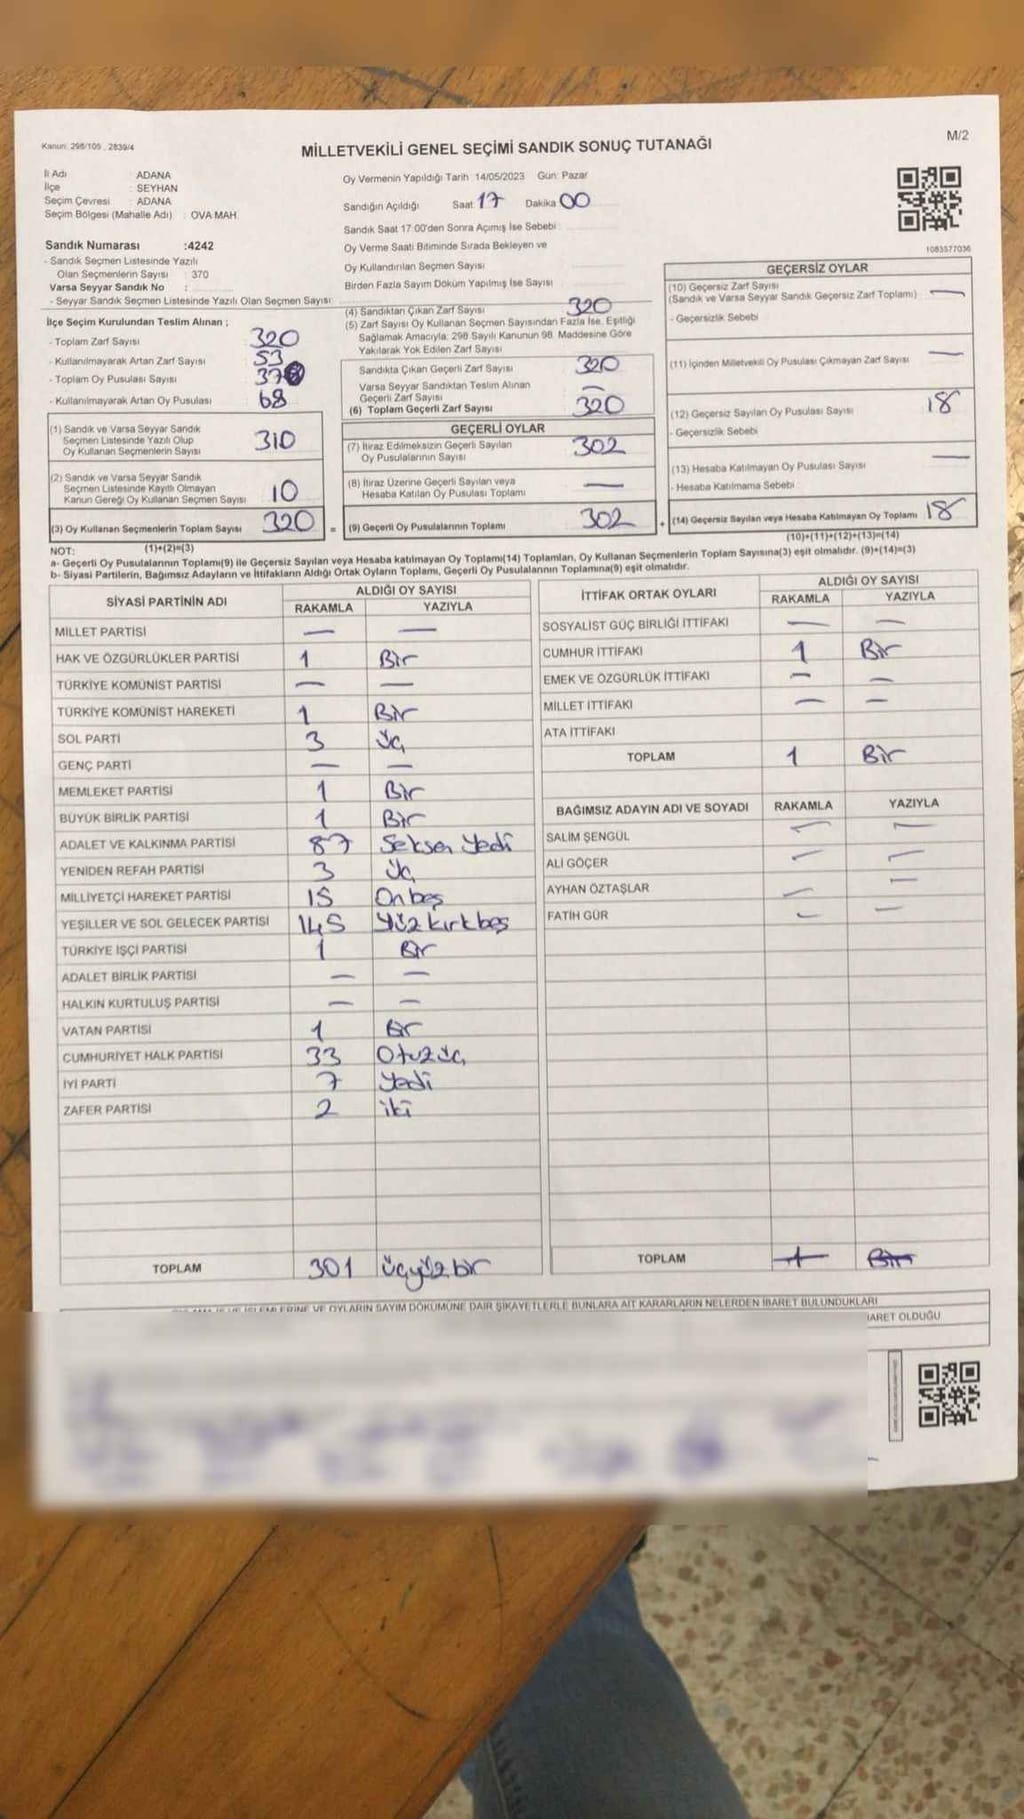 Kanun: 298/105 , 2839/4
M/2
MİLLETVEKİLİ GENEL SEÇİMİ SANDIK SONUÇ TUTANAĞI
İl Adı ADANA
İlçe : SEYHAN
Seçim Çevresi : ADANA
Seçim Bölgesi (Mahalle Adı) : OVA MAH.
Sandık Numarası :4242
- Sandık Seçmen Listesinde Yazılı
Olan Seçmenlerin Sayısı : 370
Varsa Seyyar Sandık No :
- Seyyar Sandık Seçmen Listesinde Yazılı Olan Seçmen Sayısı:
Oy Vermenin Yapıldığı Tarih :14/05/2023 Gün: Pazar
Sandığın Açıldığı Saat 17 Dakika 00
Sandık Saat 17:00'den Sonra Açımış İse Sebebi :
Oy Verme Saati Bitiminde Sırada Bekleyen ve
Oy Kullandırılan Seçmen Sayısı
Birden Fazla Sayım Döküm Yapılmış İse Sayısı :
1083577036
İlçe Seçim Kurulundan Teslim Alınan ;
- Toplam Zarf Sayısı 320
- Kullanılmayarak Artan Zarf Sayısı 53
- Toplam Oy Pusulası Sayısı
- Kullanılmayarak Artan Oy Pusulası 68
(1) Sandık ve Varsa Seyyar Sandık
Seçmen Listesinde Yazılı Olup
Oy Kullanan Seçmenlerin Sayısı 310
(2) Sandık ve Varsa Seyyar Sandık
Seçmen Listesinde Kayıtlı Olmayan
Kanun Gereği Oy Kullanan Seçmen Sayısı 10
(3) Oy Kullanan Seçmenlerin Toplam Sayısı 320 =
(4) Sandıktan Çıkan Zarf Sayısı 320
(5) Zarf Sayısı Oy Kullanan Seçmen Sayısından Fazla İse, Eşitliği
Sağlamak Amacıyla; 298 Sayılı Kanunun 98. Maddesine Göre
Yakılarak Yok Edilen Zarf Sayısı
Sandıkta Çıkan Geçerli Zarf Sayısı 320
Varsa Seyyar Sandıktan Teslim Alınan
Geçerli Zarf Sayısı —
(6) Toplam Geçerli Zarf Sayısı 320
GEÇERLİ OYLAR
(7) İtiraz Edilmeksizin Geçerli Sayılan
Oy Pusulalarının Sayısı 302
(8) İtiraz Üzerine Geçerli Sayılan veya
Hesaba Katılan Oy Pusulası Toplamı —
(9) Geçerli Oy Pusulalarının Toplamı 302 +
GEÇERSİZ OYLAR
(10) Geçersiz Zarf Sayısı
(Sandık ve Varsa Seyyar Sandık Geçersiz Zarf Toplamı) —
- Geçersizlik Sebebi
(11) İçinden Milletvekili Oy Pusulası Çıkmayan Zarf Sayısı —
(12) Geçersiz Sayılan Oy Pusulası Sayısı 18
- Geçersizlik Sebebi
(13) Hesaba Katılmayan Oy Pusulası Sayısı —
- Hesaba Katılmama Sebebi
(14) Geçersiz Sayılan veya Hesaba Katılmayan Oy Toplamı 18
(10)+(11)+(12)+(13)=(14)
NOT: (1)+(2)=(3)
a- Geçerli Oy Pusulalarının Toplamı(9) ile Geçersiz Sayılan veya Hesaba katılmayan Oy Toplamı(14) Toplamları, Oy Kullanan Seçmenlerin Toplam Sayısına(3) eşit olmalıdır. (9)+(14)=(3)
b- Siyasi Partilerin, Bağımsız Adayların ve İttifakların Aldığı Ortak Oyların Toplamı, Geçerli Oy Pusulalarının Toplamına(9) eşit olmalıdır.
SİYASİ PARTİNİN ADI ALDIĞI OY SAYISI
RAKAMLA YAZIYLA
MİLLET PARTİSİ — —
HAK VE ÖZGÜRLÜKLER PARTİSİ 1 Bir
TÜRKİYE KOMÜNİST PARTİSİ — —
TÜRKİYE KOMÜNİST HAREKETİ 1 Bir
SOL PARTİ 3 Üç
GENÇ PARTİ — —
MEMLEKET PARTİSİ 1 Bir
BÜYÜK BİRLİK PARTİSİ 1 Bir
ADALET VE KALKINMA PARTİSİ 87 Seksen Yedi
YENİDEN REFAH PARTİSİ 3 Üç
MİLLİYETÇİ HAREKET PARTİSİ 15 Onbeş
YEŞİLLER VE SOL GELECEK PARTİSİ 145 Yüz kırk beş
TÜRKİYE İŞÇİ PARTİSİ 1 Bir
ADALET BİRLİK PARTİSİ — —
HALKIN KURTULUŞ PARTİSİ — —
VATAN PARTİSİ 1 Bir
CUMHURİYET HALK PARTİSİ 33 Otuz üç
İYİ PARTİ 7 Yedi
ZAFER PARTİSİ 2 iki
TOPLAM 301 üçyüz bir
İTTİFAK ORTAK OYLARI ALDIĞI OY SAYISI
RAKAMLA YAZIYLA
SOSYALİST GÜÇ BİRLİĞİ İTTİFAKI — —
CUMHUR İTTİFAKI 1 Bir
EMEK VE ÖZGÜRLÜK İTTİFAKI — —
MİLLET İTTİFAKI — —
ATA İTTİFAKI
TOPLAM 1 Bir
BAĞIMSIZ ADAYIN ADI VE SOYADI RAKAMLA YAZIYLA
SALİM ŞENGÜL — —
ALİ GÖÇER — —
AYHAN ÖZTAŞLAR — —
FATİH GÜR — —
TOPLAM 1 Bir
OYLARIN SAYIM DÖKÜMÜNE DAİR ŞİKAYETLERLE BUNLARA AİT KARARLARIN NELERDEN İBARET BULUNDUKLARI
OLDUĞU